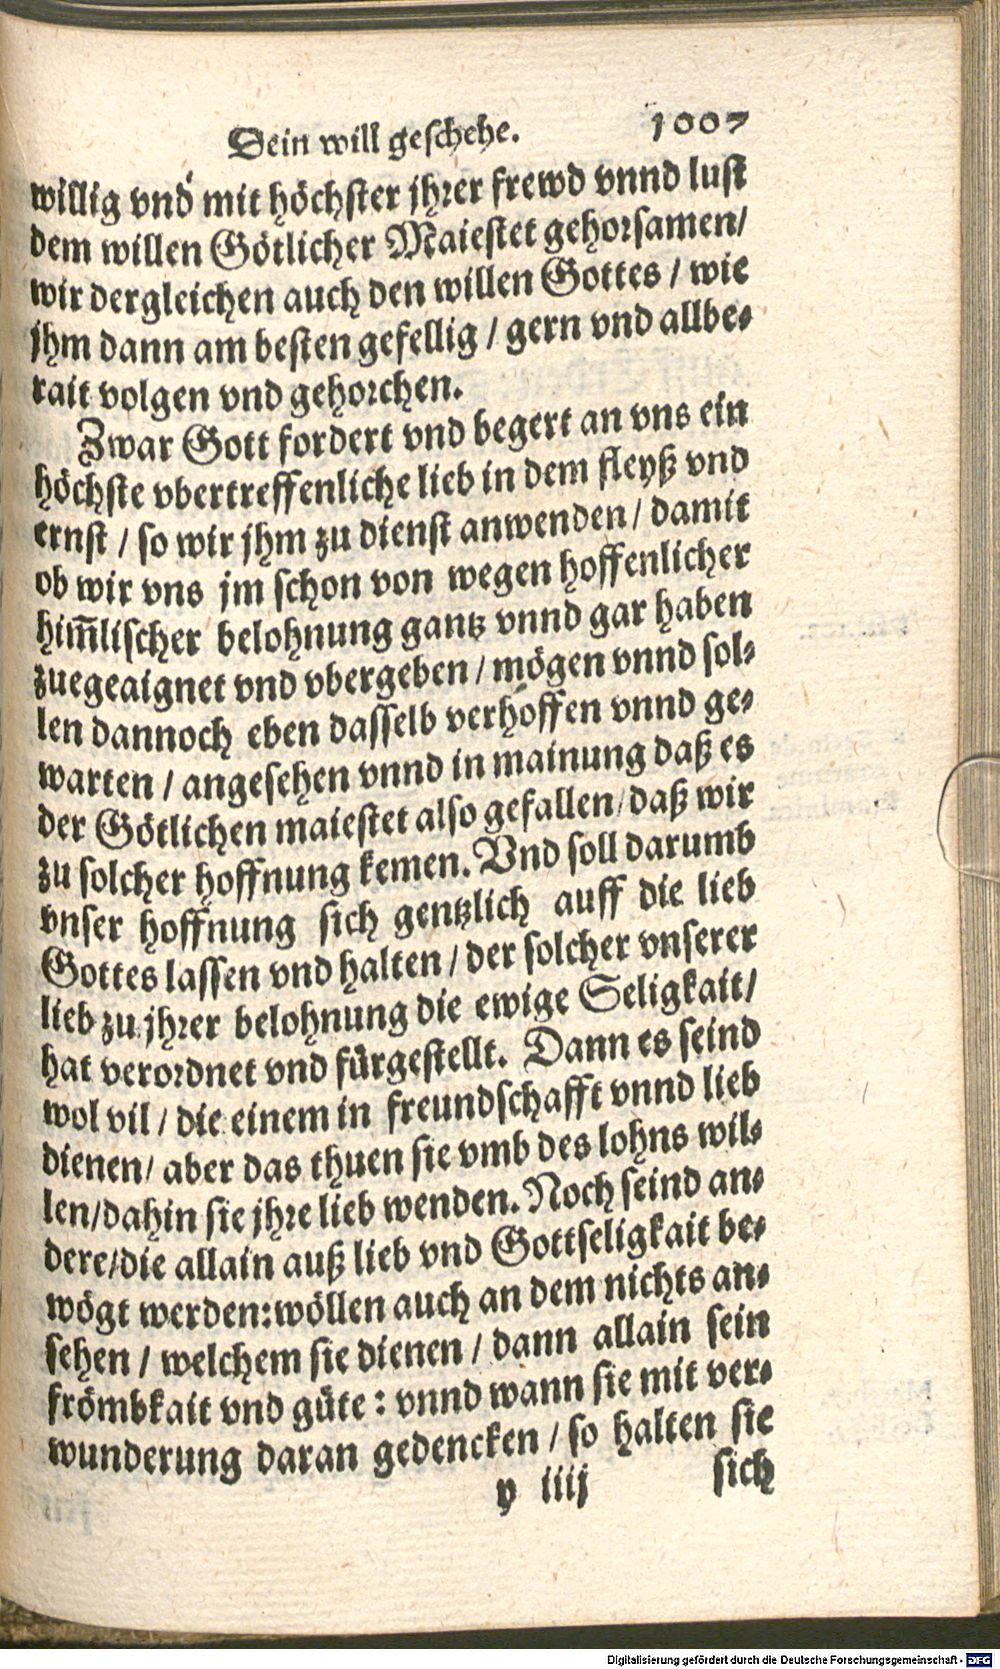 Dein will geschehe. 1007
willig vnd mit höchster jhrer frewd vnnd lust
dem willen Götlicher Maiestet gehorsamen/
wir dergleichen auch den willen Gottes / wie
jhm dann am besten gefellig / gern vnd allbe-
rait volgen vnd gehorchen.
Zwar Gott fordert vnd begert an vns ein
höchste vbertreffenliche lieb in dem fleyß vnd
ernst / so wir jhm zu dienst anwenden / damit
ob wir vns jm schon von wegen hoffenlicher
him̃lischer belohnung gantz vnnd gar haben
zuegeaignet vnd vbergeben / mögen vnnd sol-
len dannoch eben dasselb verhoffen vnnd ge-
warten / angesehen vnnd in mainung daß es
der Götlichen maiestet also gefallen/ daß wir
zu solcher hoffnung kemen. Vnd soll darumb
vnser hoffnung sich gentzlich auff die lieb
Gottes lassen vnd halten / der solcher vnserer
lieb zu jhrer belohnung die ewige Seligkait/
hat verordnet vnd fürgestellt. Dann es seind
wol vil / die einem in freundschafft vnnd lieb
dienen/ aber das thuen sie vmb des lohns wil-
len/dahin sie jhre lieb wenden. Noch seind an-
dere/die allain auß lieb vnd Gottseligkait be-
wögt werden:wöllen auch an dem nichts an-
sehen / welchem sie dienen / dann allain sein
frömbkait vnd güte : vnnd wann sie mit ver-
wunderung daran gedencken / so halten sie
y iiij sich
Digitalisierung gefördert durch die Deutsche Forschungsgemeinschaft - DFG